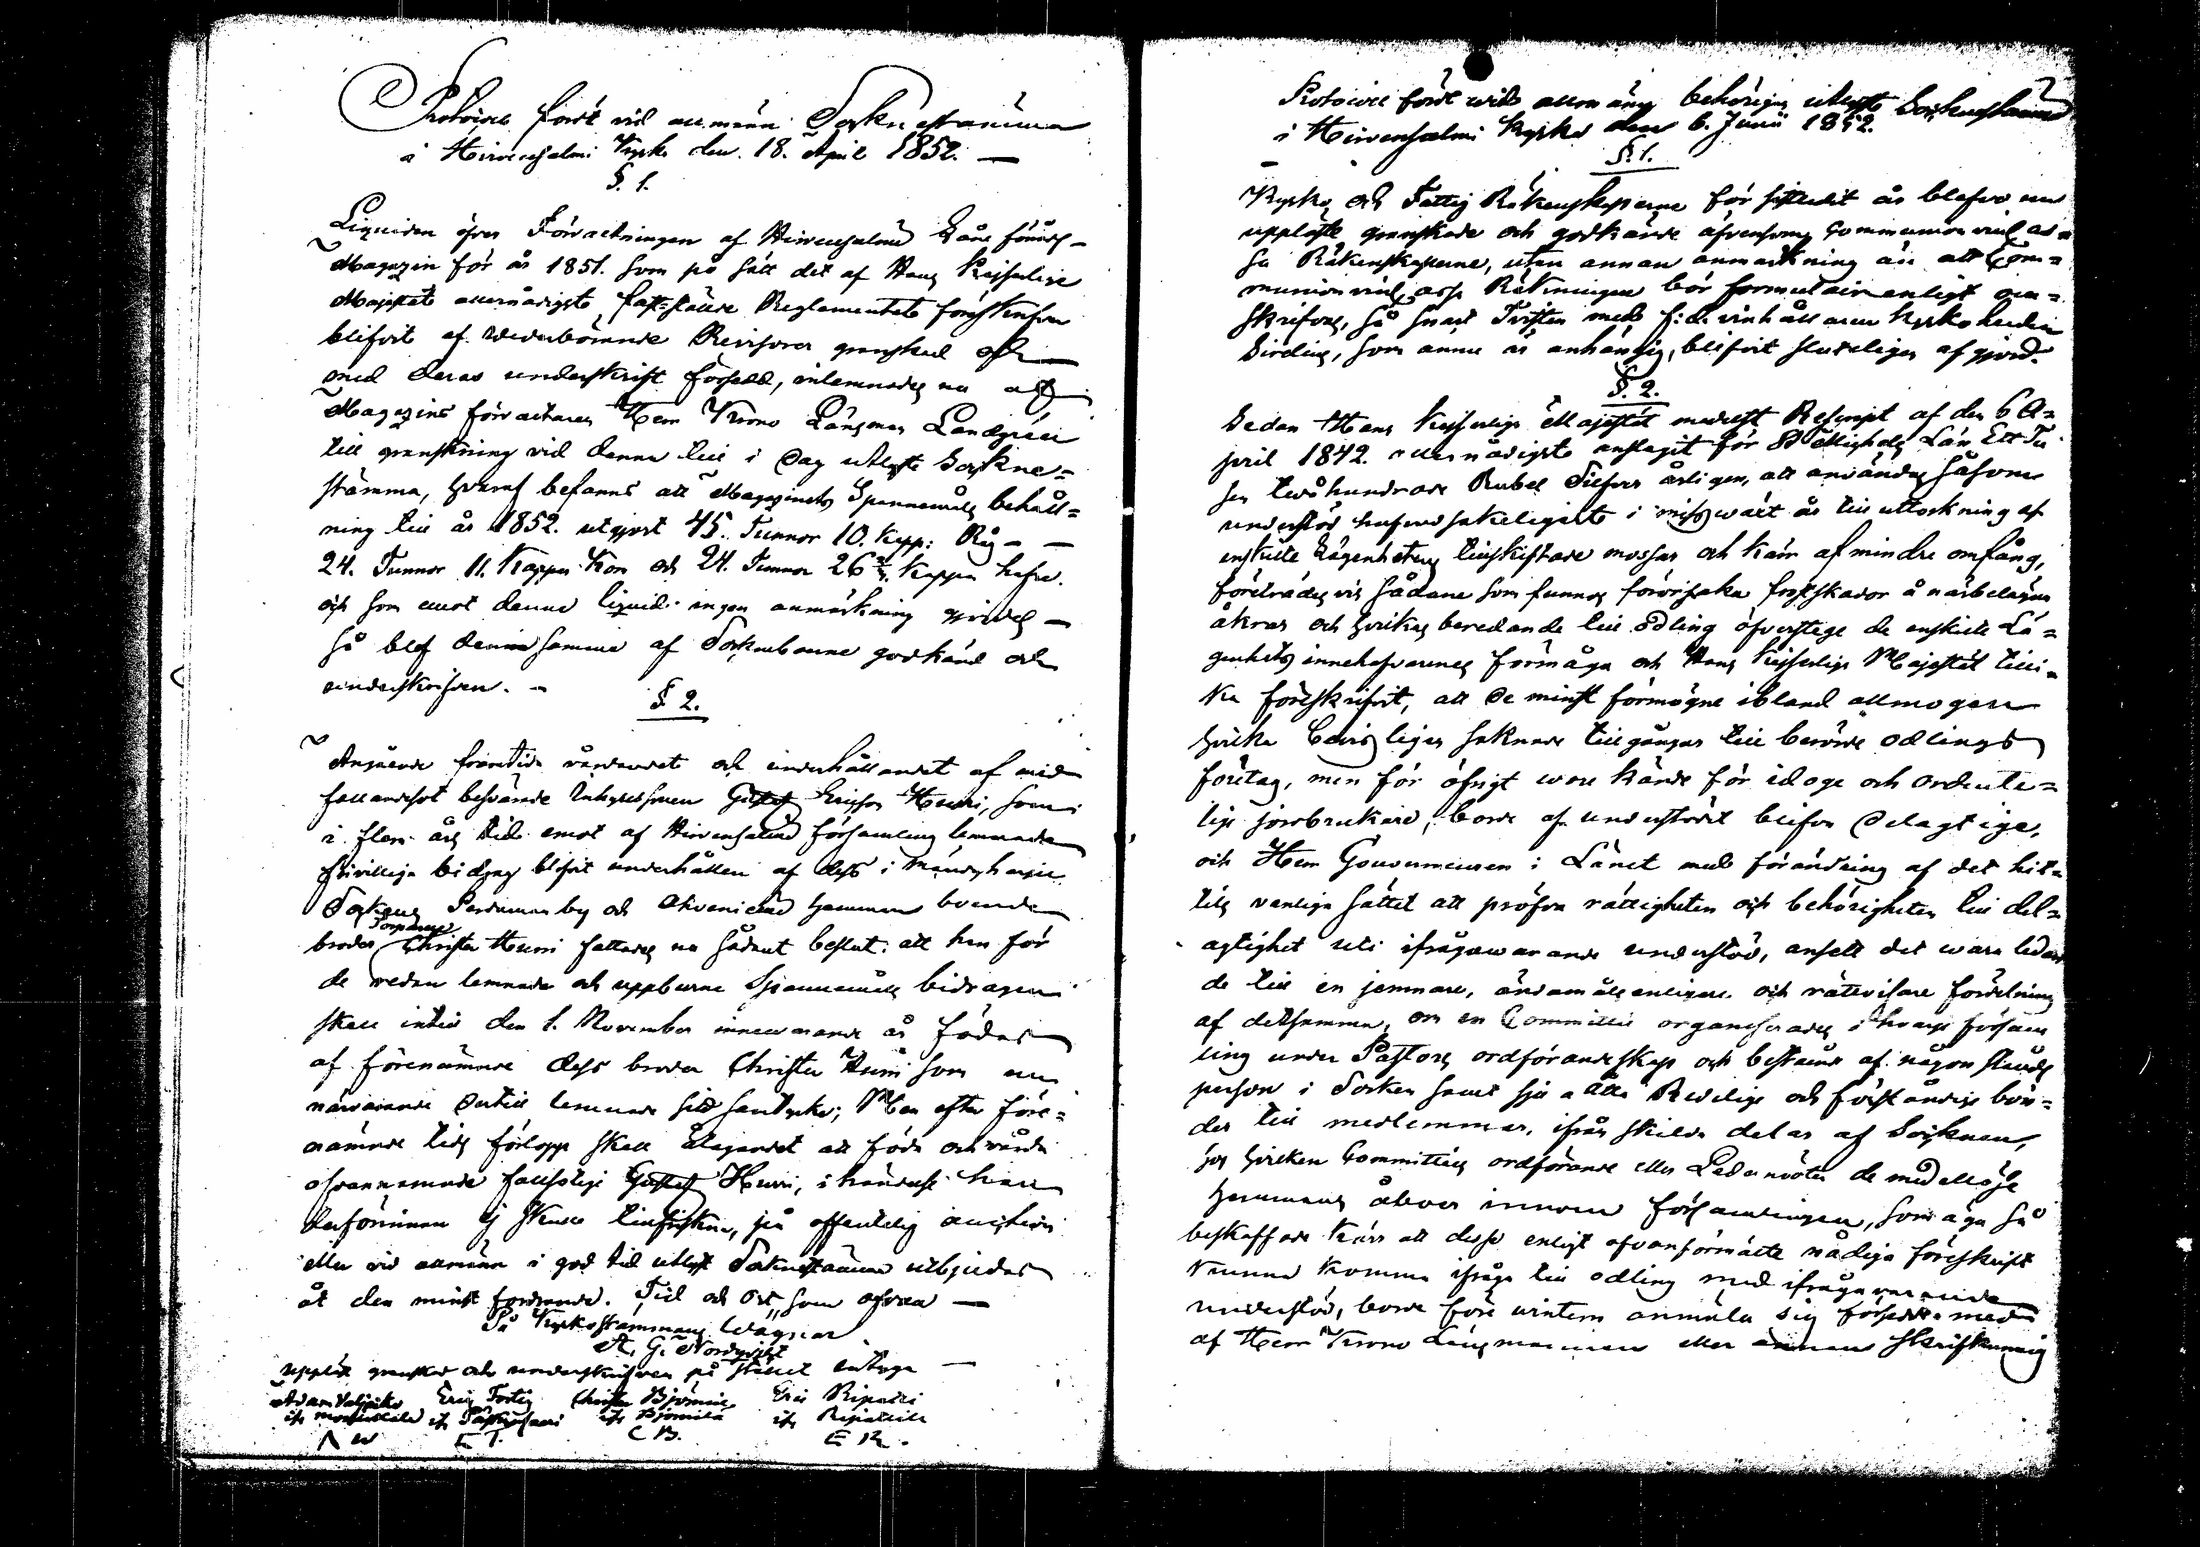 Protocoll fördt vid allmänn Sockne stämma
i Hirvensalmi Kyrka den 18. April 1852. —
§. 1.
Liquiden öfver Förvaltningen af Hirvensalmi Låne förråds-
Magazin för år 1851. som på sätt det af Hans Kejserlige
Majestät allernådigste fastställde Reglementet föreskrifver
blifvit af vederbörande Revisorer granskad och
med deras underskrift försedd, inlemnades nu af
Magazins förvaltaren Herr Krono Länsman Landgren
till granskning vid denna till i dag utlyste Sockne-
stämma, hvaraf befanns att Magazinets Spannemåls behåll-
ning till år 1852. utgjort 45. Tunnor 10. Kapp: Råg — —
24. Tunnor 11. Kappar Korn och 24. Tunnor 26 Kappar hafre.
och som emot denna liquid ingen anmärkning gjordes —
så blef densamma af Sockneboerne godkänd och
underskrifven. —
§ 2.
Angående framtida vårdandet och underhållandet af med
fallandesot besvärade Gustaf Ersson Hurri, som
i flere års tid emot af Hirvensalmi församling lemnade
frivilliga bidrag blifvit underhållen af dess i Mändyharju
Socken by och hemman boende
broder Torparen Christer Hurri fattades nu sådant beslut: att han för
de redan lemnade och uppburne Spannemåls bidragen
skall intill den 1. November innevarande år födas
af förenämnde dess broder Christer Hurri som nu
närvarande dertill lemnade sitt samtycke; Men efter före-
nämnde tids förlopp skall åtagandet att föda och vårda
ofvannämnde fallsotige Gustaf Hurri, i händelse han
derförinnan ej skulle tillfriskna, på offentelig auction
eller vid allmänn i god tid utlyst Socknestämma utbjudas
åt den minst fordrande. Tid och Ort, som ofvan —
På Kyrkostämmans Wägnar
A. G. Nordqvist
Uppläst granskat och underskrifven på stället intyga —
Adam Valjakka Eric Tortig Christer Björninen Eric Ripatti
ifr. ifr. ifr. Björnilä ifr. Ripatila
A W E T. C B. E R.
Protocoll fördt wid allmäng behörigen utlyst Sockenstämma
i Hirvensalmi Kyrka den 6. Junii 1852.
§. 1.
Kyrko och Fattig Räkenskaperne för sistledit år blefvo nu
uppläste granskade och godkände äfvensom Communion vins cas-
sa Räkenskaperne, utan annan anmärkning än att Com-
munion vins cassa Räkningen bör formulairenligt om-
skrifvas, så snart Tvisten med f:d. vinhållaren Kyrkoherden
Sirelius, som ännu är anhängig, blifvit slutligen afgjord.
§. 2.
Sedan Hans Kejserliga Majestät medelst Rescript af den 6 A-
pril 1842. allernådigste anslagit för St Michels Län Ett Tu
sen tvåhundrade Rubel Silfver årligen, att användas såsom
understöd hufvudsakeligaste i missväxt år till uttorkning af
enskilte Lägenheter tillskiftade mossar och kärr af mindre omfång,
företrädesvis sådane som funnos förorsaka frostskador å närbelägne
åkrar och hvilkas beredande till odling öfverstege de enskilte Lä-
genhets innehafvarenes förmåga och Hans Kejserliga Majestät tilli-
ka föreskrifvit, att de minst förmögne ibland allmogen
hvilka bevisligen saknade tillgångar till berörde odlings
företag, men för öfrigt wore kände för idoge och ordente-
lige jordbrukare, borde af understödet blifva delagtige,
och Herr Gouverneuren i Länet med förändring af det hit-
tills vanliga sättet att pröfva rättigheten och behörigheten till del-
agtighet uti ifrågavarande understöd, ansett det wara ledan
de till en jemnare, ändamålsenligare och rättvisare fördelning
af detsamma, om en Committée organiserades i hvarje försam
ling under Pastors ordförandeskap och bestående af någon stånds
person i Socken samt sju a åtta Redelige och förståndige bön-
der till medlemmar, ifrån skilda delar af Socknen,
hos hvilken Committées ordförande eller Ledamöter de medellöse
hemmans åboer innom församlingen, som äga så
beskaffade kärr att desse enligt ofvanförmälte nådiga föreskrift
kunna komma ifråga till odling med ifrågavarande
understöd, borde före wintern anmäla sig försedde med
af Herr Krono Länsmannen eller annan skrifkunnig